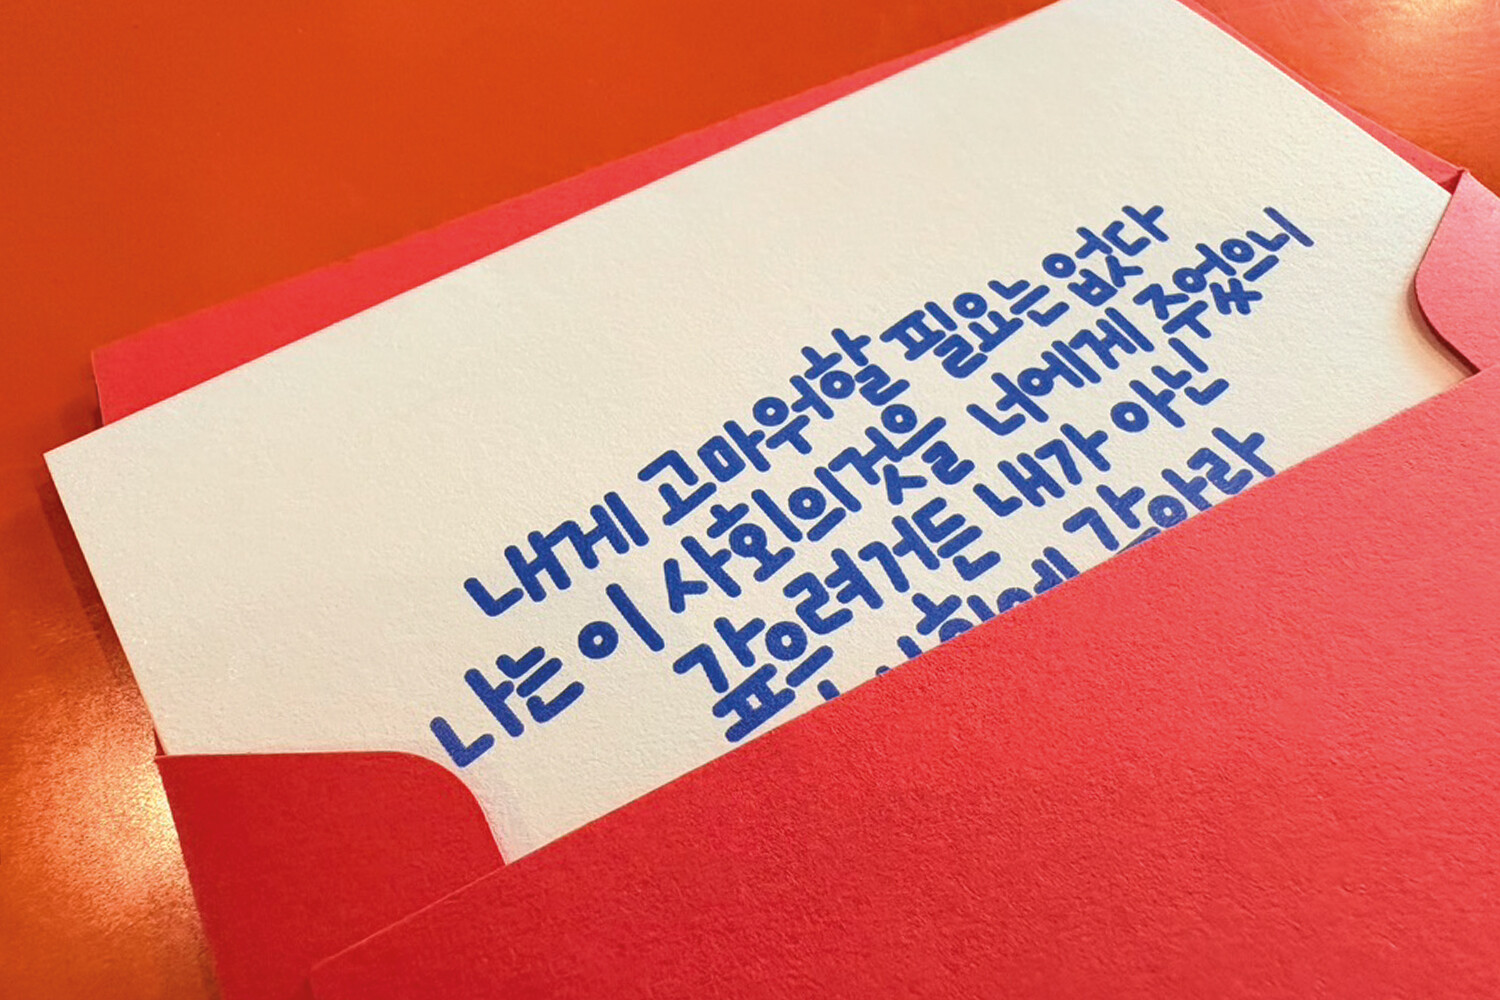 내게 고마워할 필요는 없다
나는 이 사회의 것을 너에게 주었으니
갚으려거든 내가 아닌
갚아라